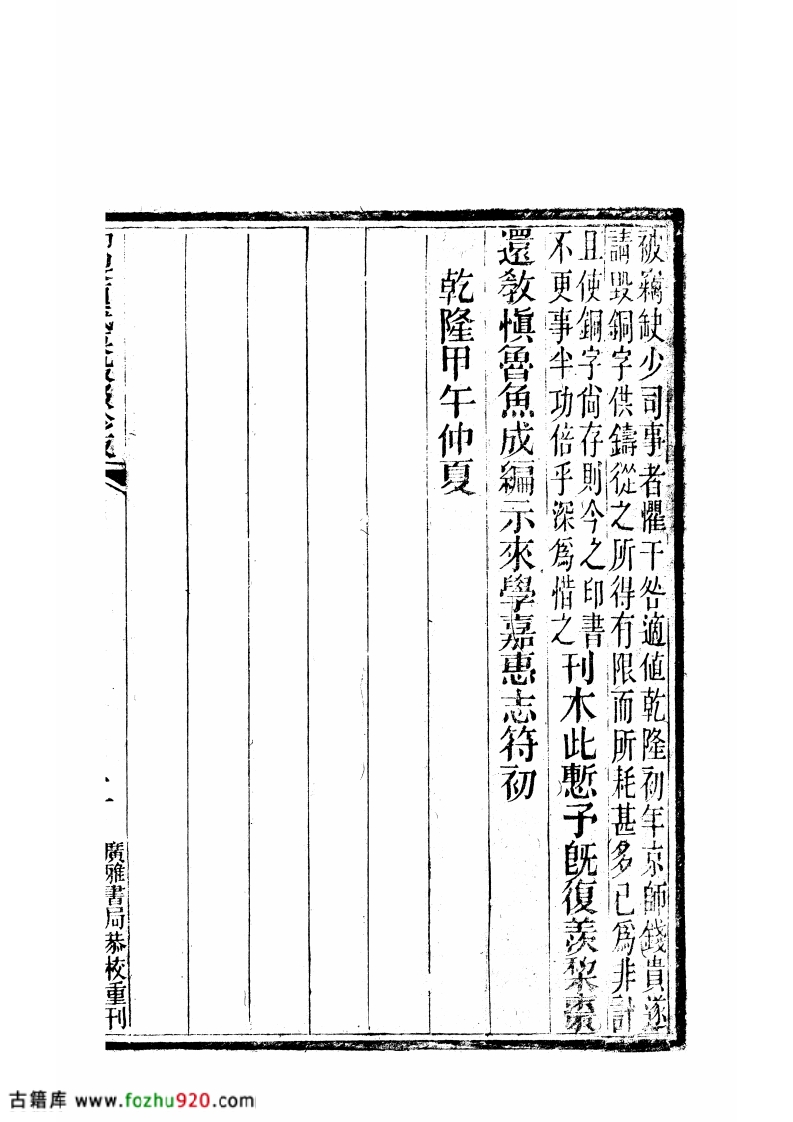 被竊缺少司事者懼干咎適値乾隆初年京師錢貴遂
請毀銅字供鑄從之所得有限而所耗甚多已爲非計
且使銅字尙存則今之印書
不更事半功倍乎深爲惜之
刊木此慙予旣復羨梨棗
還敎愼魯魚成編示來學嘉惠志符初
乾隆甲午仲夏
廣雅書局恭校重刊
古籍库 www.fozhu920.com